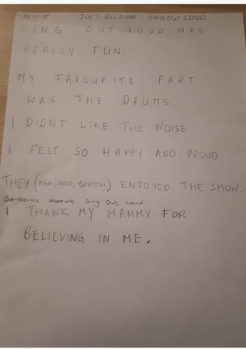 SING OUT LOUD WAS
REALLY FUN.
MY FAVOURITE PART
WAS THE DRUMS
I DIDNT LIKE THE NOISE
I FELT SO HAPPY AND PROUD
THEY (MAM, DAD, ) ENJOYED THE SHOW.
Sing Out Loud
I THANK MY MAMMY FOR
BELIEVING IN ME.